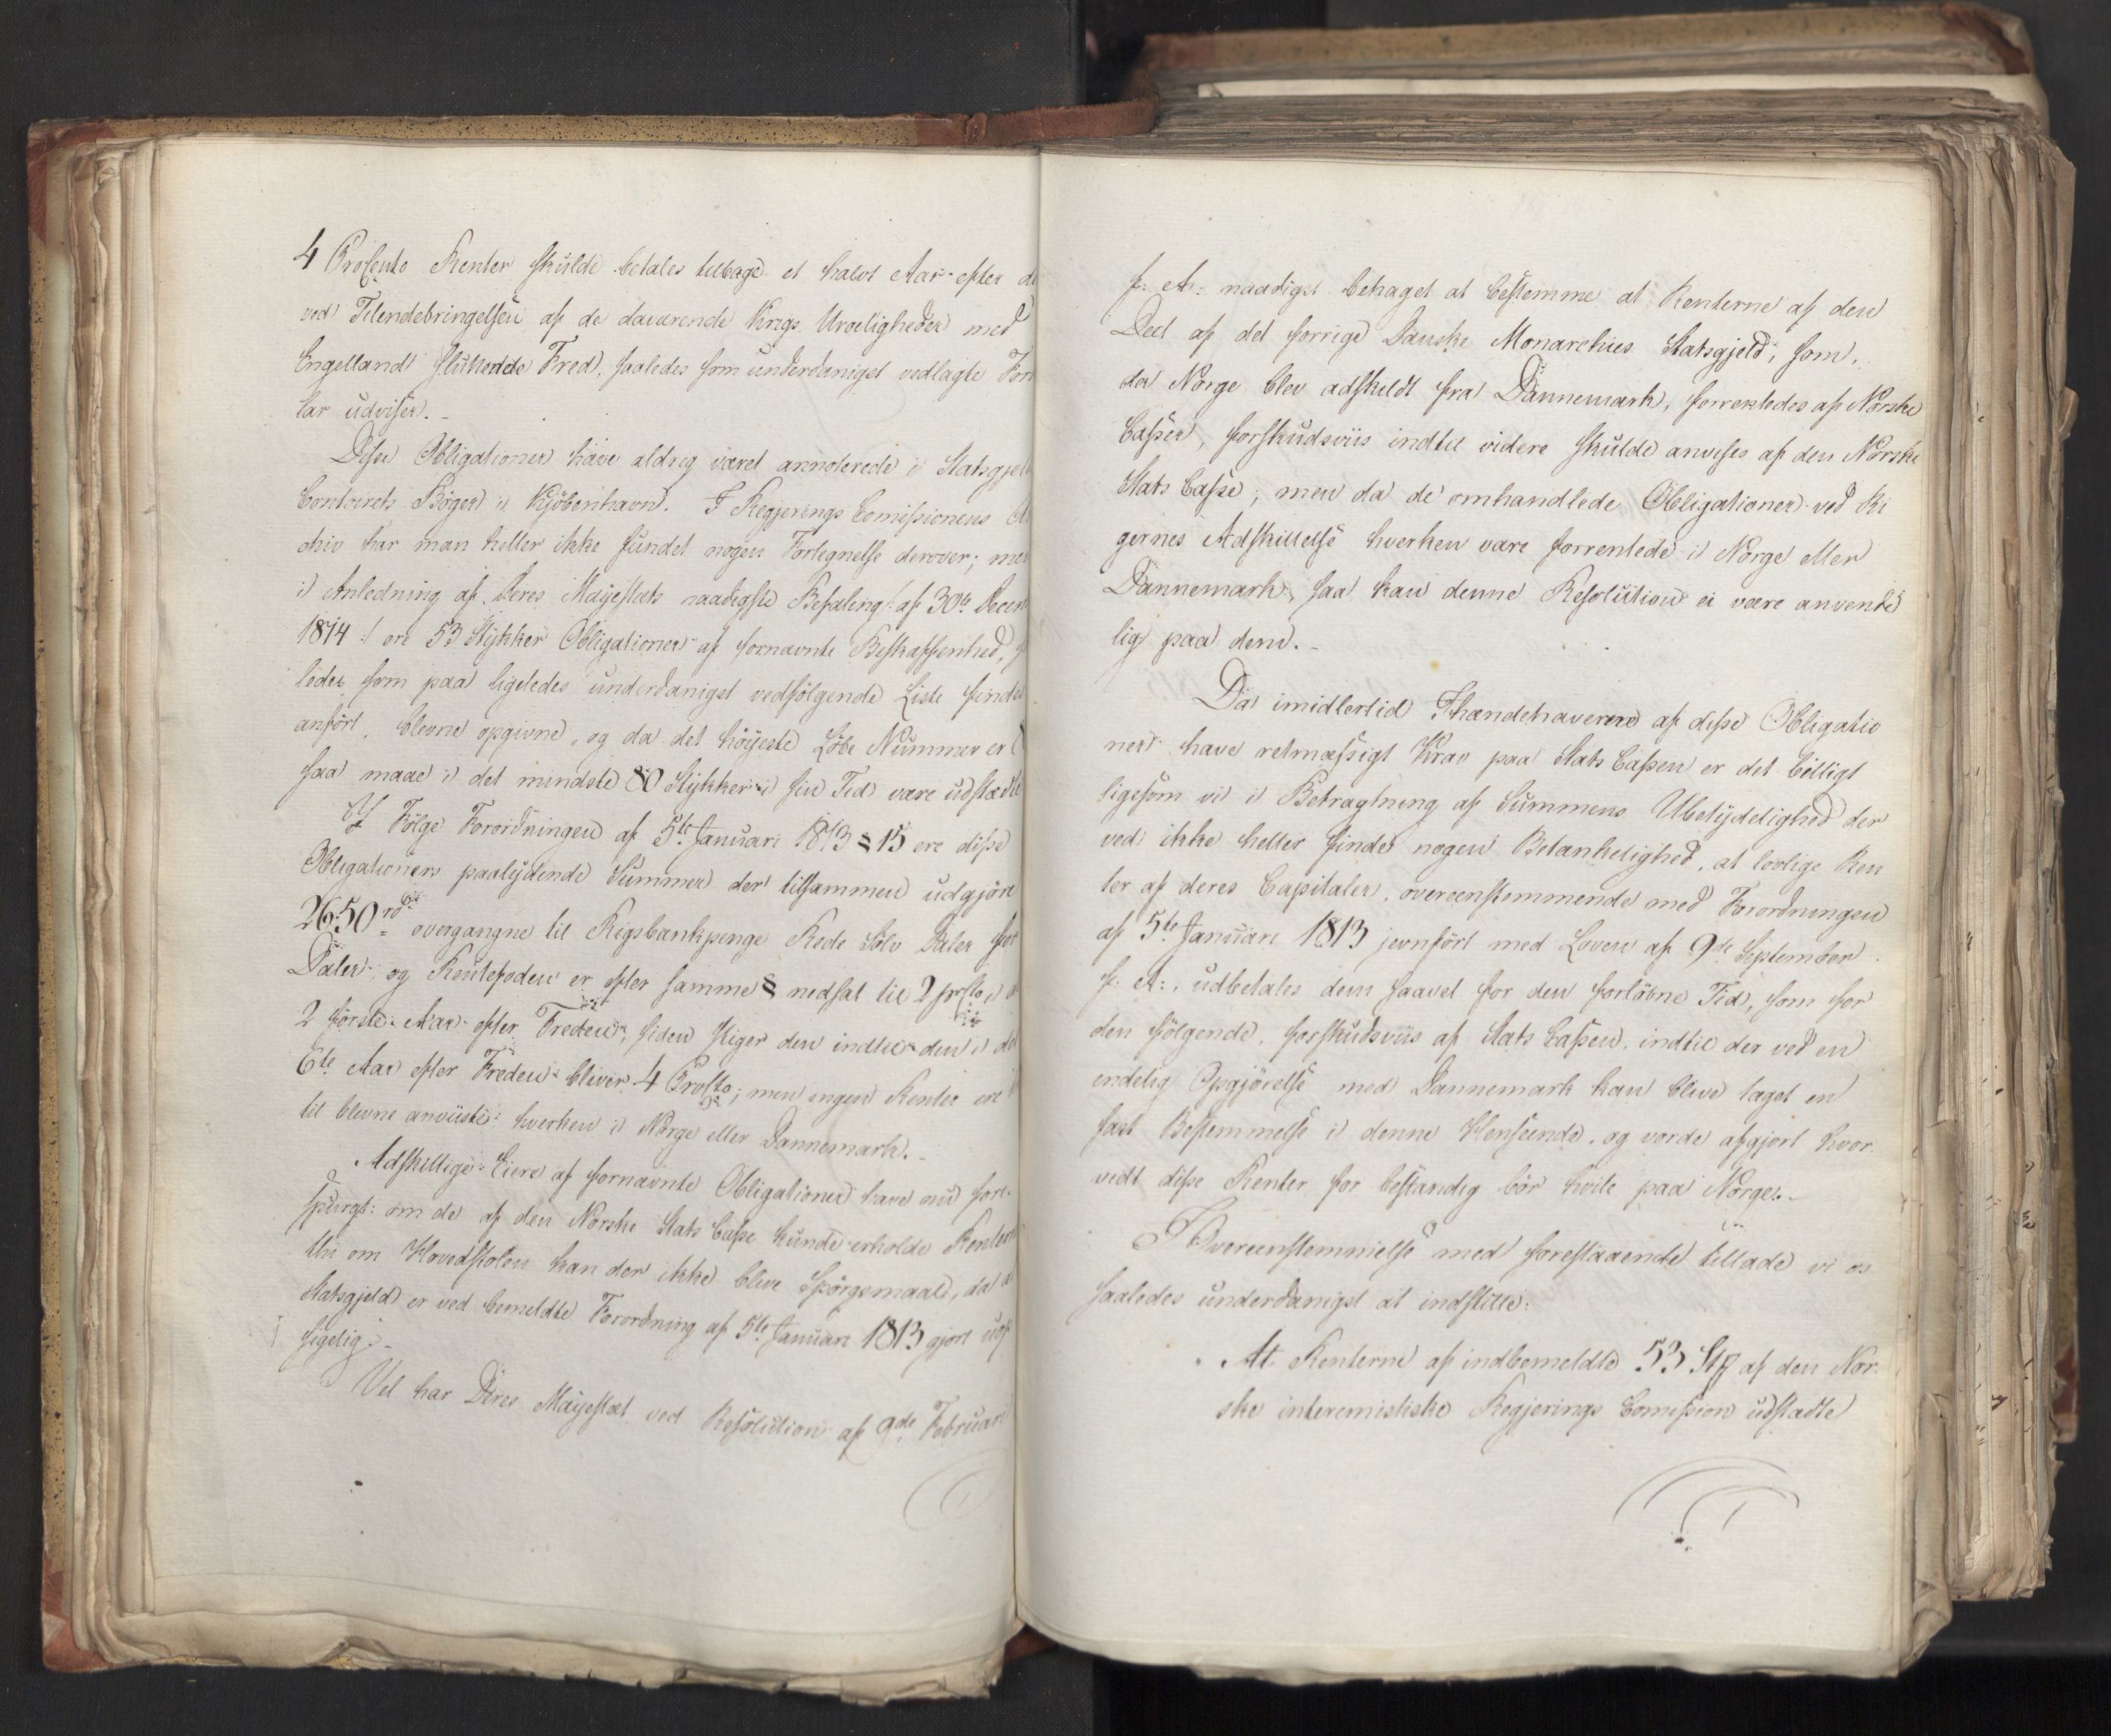 4 Procento Renter skulde betales tilbage et halvt Aar efter de
ved Tilendebringelsen af de daværende Krigs Uroeligheder med
Engelland sluttende Fred, saaledes som underdanigst vedlagte For
lar udviser. -
Disse Obligationer have aldrig været annoterede i Statsgjeld
Contoirets Bøger i Kjöbenhavn. I Regjerings Comissionens A
chiv har man heller ikke fundet nogen Fortegnelse derover; men
i Anledning af Deres Majestæts naadigste Befaling af 30te Decem
1814 :/ ere 53 Stykker Obligationer af fornævnte Beskaffenhed,
ledes som paa ligeledes underdanigst vedfölgende Liste findes
anfört, blevne opgivne, og da det höijeste Löbe Nummer er
saa maae i det mindste 80 Stykker i sin Tid være udstædte
I Fölge Forordningen af 5te Januari 1813 § 15 ere disse
Obligationers paalydende Summer der tilsammen udgjöre
2650 rd overgangne til Rigsbankpenge Rede Sölv Daler for
Daler, og Rentefoden er efter samme § nedsat til 2 prCto i
2 förste Aar efter Freden, siden stiger den indtil den i det
6te Aar efter Freden bliver 4 ProCto; men ingen Renter ere
til blevne anviiste hverken i Norge eller Dannemark. -
Adskillige Eiere af fornævnte Obligationer have nu fore-
spurgt: om de af den Norske Stats Casse kunde erholde Renter
thi om Hovedstolen kan der ikke blive Spörgsmaal, da
Statsgjeld er ved bemeldte Forordning af 5te Januari 1813 gjort uop
sigelig. -
Vel har Deres Majestæt ved Resolution af 9de Februari
f: A: naadigst behaget at bestemme at Renterne af den
Deel af det forrige Danske Monarchies Statsgjeld, som,
da Norge blev adskildt fra Dannemark, forrentedes af Norske
Casser, forskudsviis indtil videre skulde anvises af den Norske
Stats Casse; men da de omhandlede Obligationer ved Ri
gernes Adskillelse hverken vare forrentede i Norge eller
Dannemark, saa kan denne Resolution ei være anvende
lig paa dem. -
Da imidlertid Ihændehaverne af disse Obligatio
ner have retmæssigt Krav paa Stats Cassen er det billigt
ligesom vi i Betragtning af Summens Ubetydelighed der
ved ikke heller finde nogen Betænkelighed, at lovlige Ren
ter af deres Capitaler, overeenstemmende med Forordningen
af 5te Januari 1813 jevnfört med Loven af 9de September
f: A:, udbetales dem saavel for den forlöbne Tid, som for
den fölgende, forskudsviis af Stats Cassen, indtil der ved en
endelig Opgjörelse med Dannemark kan blive taget en
fast Bestemmelse i denne Henseende, og vorde afgjort hvor
vidt disse Renter for bestandig bör hvile paa Norge. -
I Overeenstemmelse med forestaaende tillade vi os
saaledes underdanigst at indstille:
At Renterne af indbemeldte 53 Stk af den Nor-
ske interimistiske Regjerings Comission udstædte